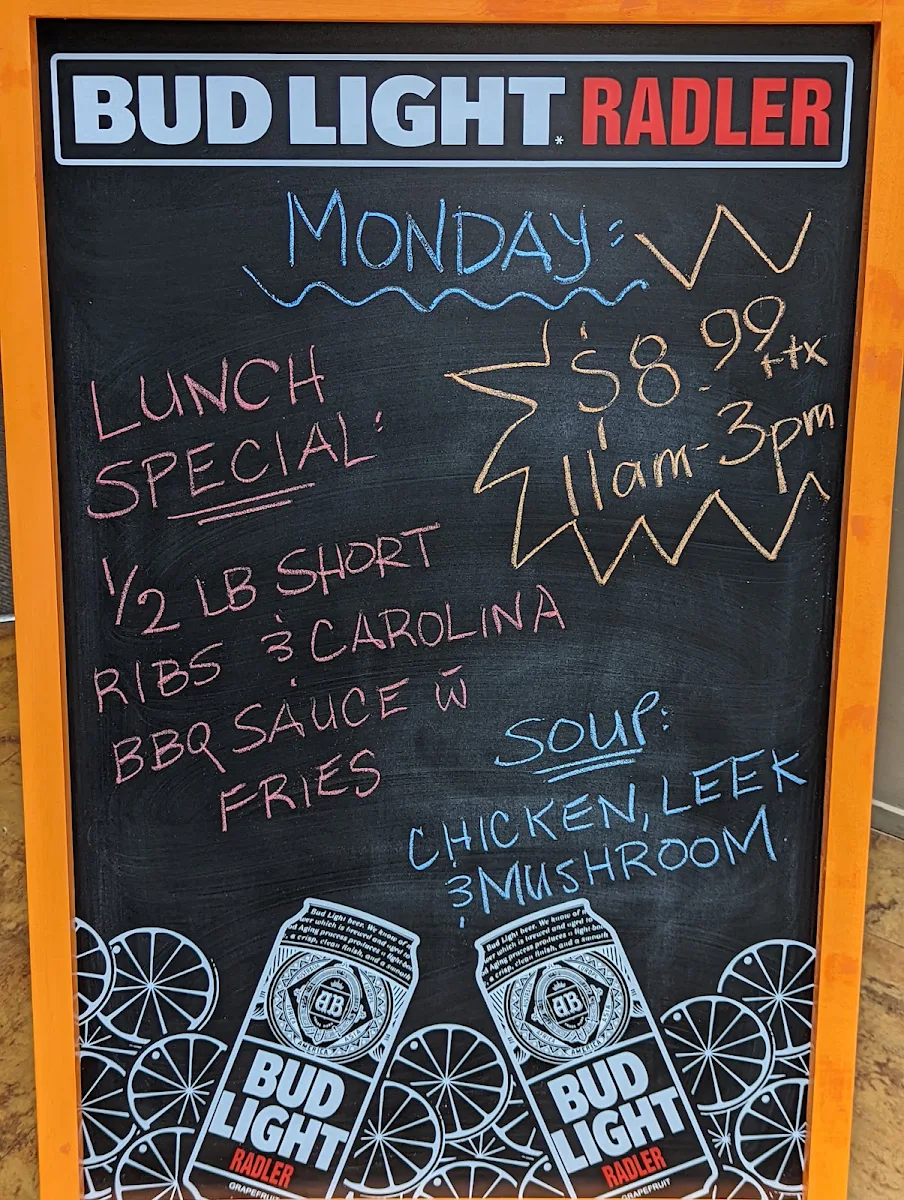 BUD LIGHT RADLER
MONDAY:
$8.99
+tx
11am-3pm
LUNCH
SPECIAL:
1/2 LB SHORT
RIBS & CAROLINA
BBQ SAUCE w̄
FRIES
SOUP:
CHICKEN, LEEK
& MUSHROOM
Bud Light beer. We know of
which is brewed and aged to
Aging process produces a light
a crisp, clean finish, and a smooth
AMERICA
BUD
LIGHT
RADLER
GRAPEFRUIT
Bud Light beer. We know of
which is brewed and aged to
Aging process produces a light-bod
a crisp, clean finish, and a smooth
AMERICA
BUD
LIGHT
RADLER
GRAPEFRUIT